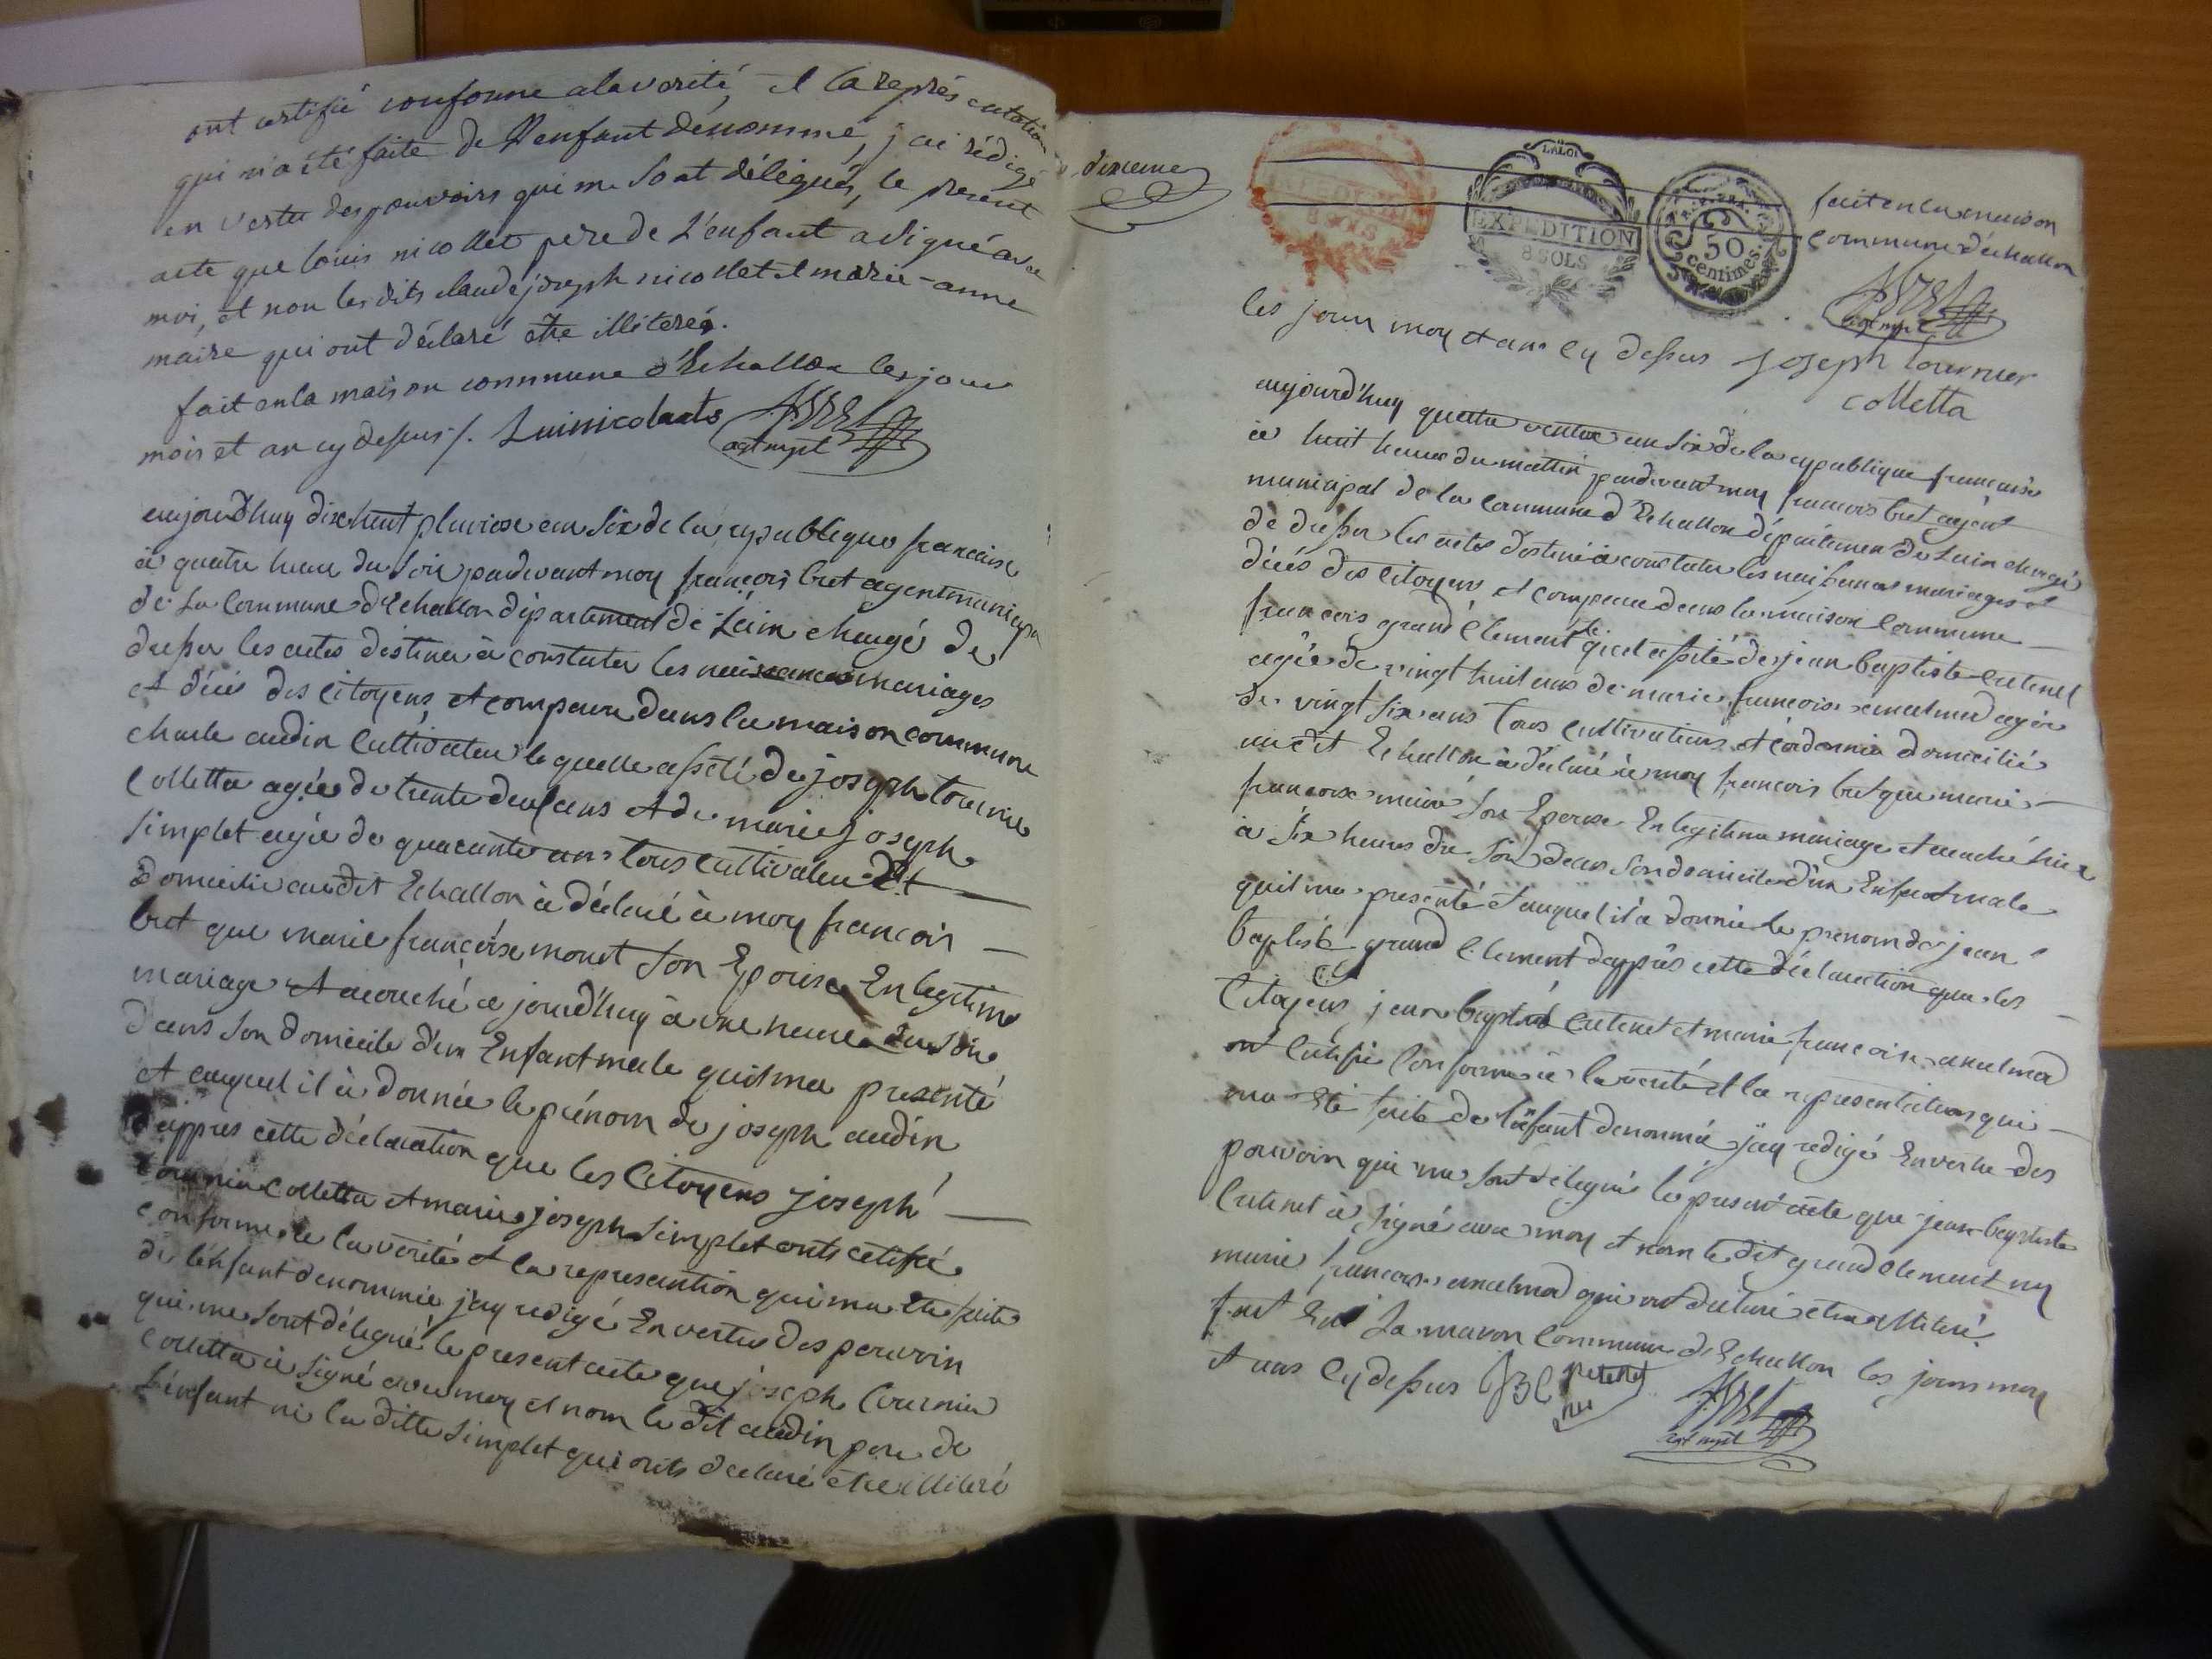 ont certifié conforme a la verité, et la représentation
qui m'a été faite de l'enfant dénommé, j'ai rédigé
en vertu des pouvoirs qui me sont délégués, le présent
acte que louis nicollet pere de l'enfant a signé avec
moi, et non les dits claude joseph nicollet et marie-anne
maire qui ont déclaré être illiterés.
fait en la maison commune d'Echallon les jour
mois et an cy dessus /. Luinicolaats
agt mpl
aujourdhuy dixhuit pluviose an six de la republique francaise
à quatre heur du soir pardevant moy francois bret agent municipa
de la Commune d'Echallon département de Lain chargé de
dresser les actes destinée à constater les naissances mariages
et décés des Citoyens, et comparu dans la maison commune
charle audin Cultivateur lequelle assisté de joseph tournie
Colletta agée de trente deux ans et de marie joseph
simplet agée de quarante ans tous cultivateur et
domicilié audit Echallon à déclaré à moy francois
bret que marie françoise monet son Epouse En legitime
mariage et acouché ce jourd'huy à une heure du soir
dans son domicile d'un Enfant male quil ma presenté
et auquel il à donnée le prénom de joseph audin
d'appres cette déclaration que les Citoyens joseph
tournier Colletta et marie joseph simplet onts cetifié
conforme à la verité et la represantion qui ma Eté faite
de lénfant denommée j'ay redigé En vertus des pouvoir
qui me sont délegué le present acte que joseph tournier
Colletta à signé avec moy et nom le dit audin pere de
L'énfant ni la ditte simplet qui onts declaré etre illiteré
dixieme
EXPEDITION
8 SOLS
LA LOI
EXPEDITION
8 SOLS
50
centimes.
fait en la maison
Commune d'echallon
agt mpl
les jour moy et ans cy dessus joseph tournier
colletta
aujourd'huy quattre ventose an six de la republique francaise
à huit heures du mattin pardevant moy francois bret agent
municipal de la Commune d'Echallon département de Lain chargé
de dresser les actes destinée à constater les naissances mariages et
décés des Citoyens et comparu dans la maison Commune
francois grand Clement lequel assisté de jean baptiste
agée de vingt huit ans de marie francoise agée
de vingt six ans tous Cultivateurs et Cordonnié domicilié
audit Echallon à déclaré à moy francois bret que marie
francoise maire son Epouse En legitime mariage et acouché hier
à six heures du soir dans son domicile d'un Enfant male
quil ma presenté et auquel il à donnée le prenom de jean
baptiste grand Clement d'apprès cette déclaration que les
Citoyens jean baptiste et marie francoise
ont Cértifié Conforme à la verité et la representation qui
ma Eté faite de l'énfant denommée j'ay redigé En vertu des
pouvoir qui me sont délegués le present acte que jean baptiste
à signé avec moy et nom le dit grand Clement ny
marie francoise qui ont déclaré etre illiteré
fait En la maison Commune d'Echallon les jours moy
et ans Cy dessus JB
agt mpl